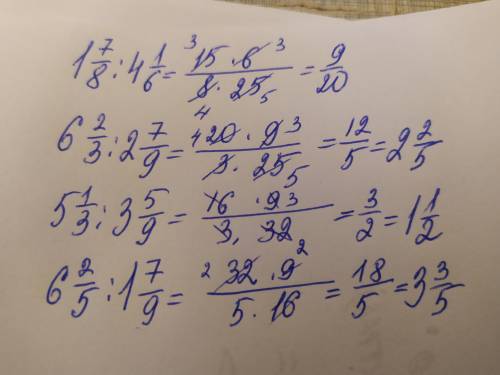 1 7/8 : 4 1/6 = ³15 · 6 ³ / 8 ₄ · 25 ₅ = 9/20
6 2/3 : 2 7/9 = ⁴20 · 9 ³ / 3 · 25 ₅ = 12/5 = 2 2/5
5 1/3 : 3 5/9 = 16 · 9 ³ / 3 · 32 ₂ = 3/2 = 1 1/2
6 2/5 : 1 7/9 = ²32 · 9 / 5 · 16 = 18/5 = 3 3/5